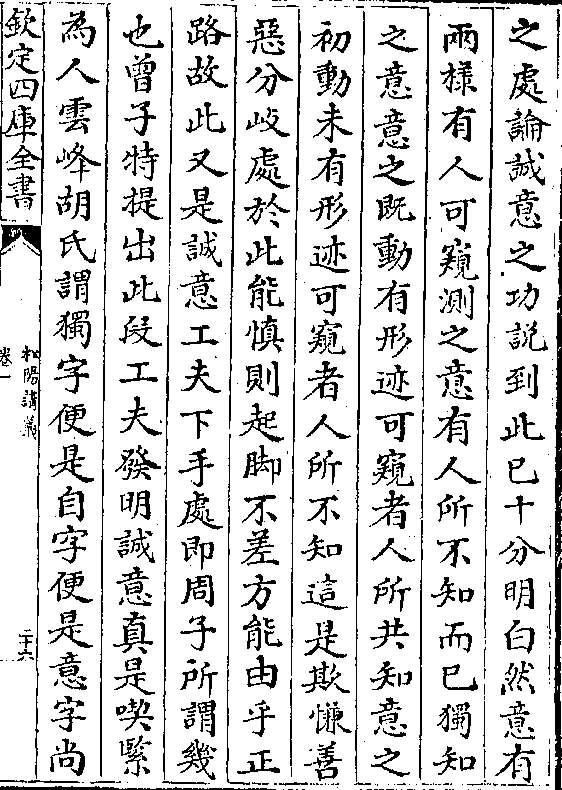 之處論誠意之功說到此已十分明白然意有
兩樣有人可窺測之意有人所不知而已獨知
之意意之既動有形迹可窺者人所共知意之
初動未有形迹可窺者人所不知這是欺慊善
惡分岐處於此能慎則起脚不差方能由乎正
路故此又是誠意工夫下手處即周子所謂幾
也曾子特提出此段工夫發明誠意真是喫緊
為人雲峰胡氏謂獨字便是自字便是意字尚
欽定四庫全書
松陽講義
卷一
二十六